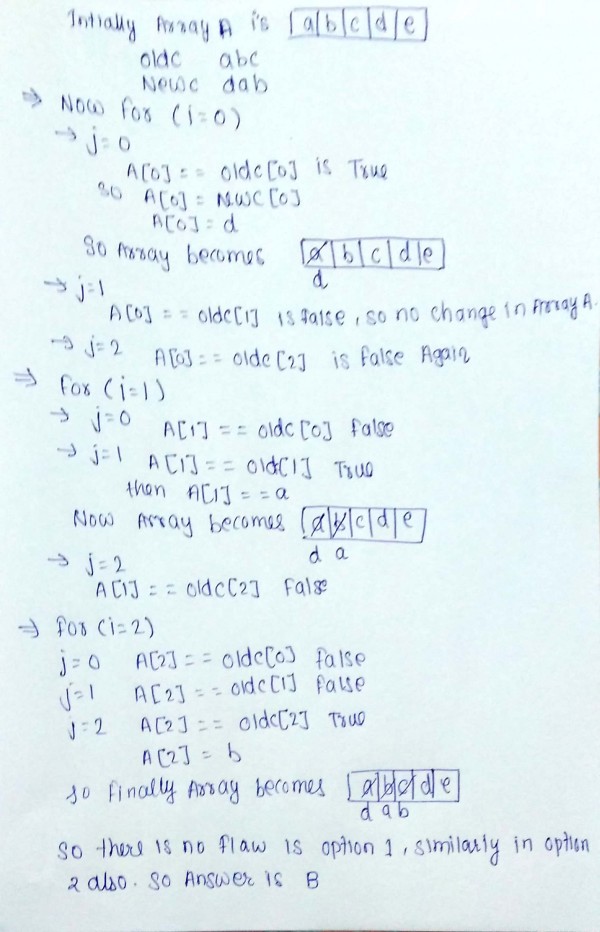 Intially Array A is |a|b|c|d|e|
oldc abc
Newc dab
⇒ Now for (i=0)
→ j=0
A[0]== oldc[0] is True
so A[0] = NewC[0]
A[0] = d
So Array becomes |a|b|c|d|e|
d
→ j=1
A[0] == oldc[1] is false, so no change in Array A.
→ j=2 A[0]== oldc[2] is false Again
⇒ for (i=1)
→ j=0 A[1] == oldc[0] false
→ j=1 A[1]== old[1] True
then A[1]==a
Now Array becomes |a|b|c|d|e|
d a
→ j=2
A[1]== oldc[2] False
⇒ for (i=2)
j=0 A[2]== oldc[0] false
j=1 A[2]==oldc[1] false
j=2 A[2]== oldc[2] True
A[2] = b
so finally Array becomes |a|b|c|d|e|
d a b
So there is no flaw is option 1, similarly in option
2 also. So Answer is B